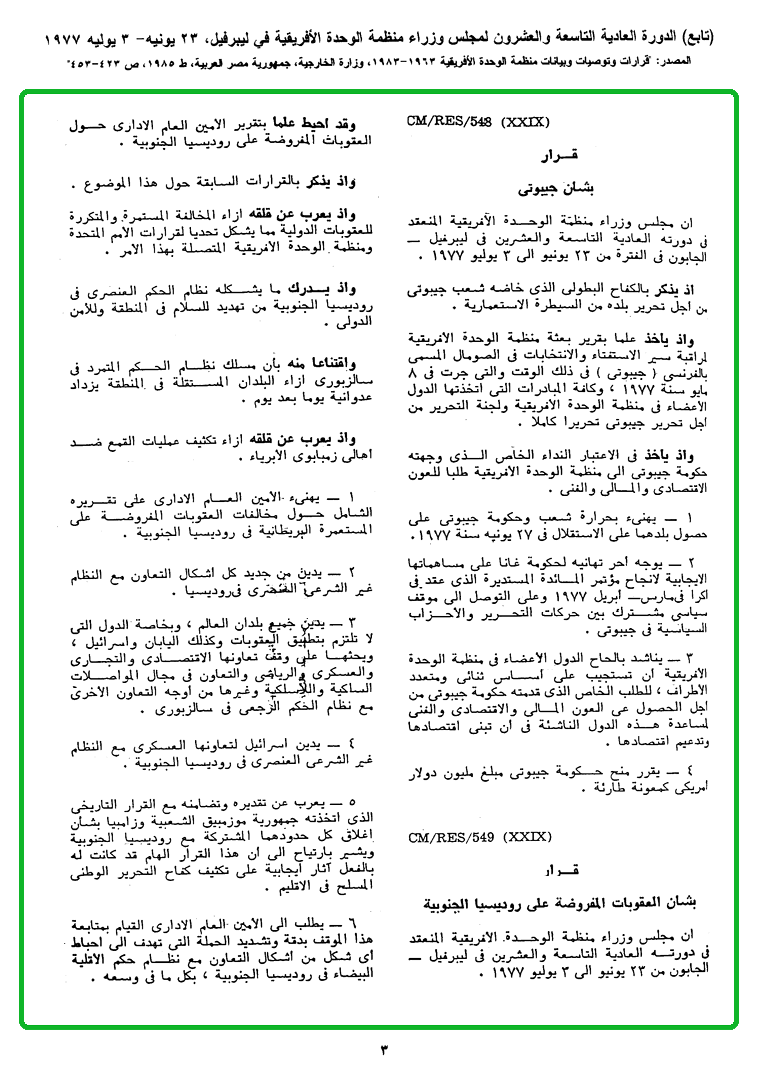 (تابع) الدورة العادية التاسعة والعشرون لمجلس وزراء منظمة الوحدة الأفريقية في ليبرفيل، ٢٣ يونيه- ٣ يوليه ١٩٧٧
المصدر: "قرارات وتوصيات وبيانات منظمة الوحدة الأفريقية ١٩٦٣-١٩٨٣، وزارة الخارجية، جمهورية مصر العربية، ط ١٩٨٥، ص ٤٢٣-٤٥٣"
CM/RES/548 (XXIX)
قـــرار
بشان جيبوتى
ان مجلس وزراء منظمة الوحـدة الأفريقية المنعقد
فى دورته العادية التاسعة والعشرين فى ليبرفيل —
الجابون فى الفترة من ٢٣ يونيو الى ٣ يوليو ١٩٧٧ .
اذ يذكر بالكفاح البطولى الذى خاضه شعب جيبوتى
من أجل تحرير بلده من السيطرة الاستعمارية .
واذ يأخذ علما بتقرير بعثة منظمة الوحدة الأفريقية
لمراقبة سير الاستفتاء والانتخابات فى الصومال المسمى
بالفرنسى ( جيبوتى ) فى ذلك الوقت والتى جرت فى ٨
مايو سنة ١٩٧٧ ، وكافة المبادرات التى اتخذتها الدول
الأعضاء فى منظمة الوحدة الأفريقية ولجنة التحرير من
أجل تحرير جيبوتى تحريرا كاملا .
واذ يأخذ فى الاعتبار النداء الخاص الـــذى وجهته
حكومة جيبوتى الى منظمة الوحدة الأفريقية طلبا للعون
الاقتصادى والمـالى والفنى .
١ — يهنىء بحرارة شعب وحكومة جيبوتى على
حصول بلدهما على الاستقلال فى ٢٧ يونيه سنة ١٩٧٧.
٢ — يوجه أحر تهانيه لحكومة غانا على مساهماتها
الايجابية لانجاح مؤتمر المـائدة المستديرة الذى عقد فى
أكرا فىمارس— أبريل ١٩٧٧ وعلى التوصل الى موقف
سياسى مشـترك بين حركات التحرير والأحـزاب
السياسية فى جيبوتى .
٣ — يناشد بالحاح الدول الأعضاء فى منظمة الوحدة
الأفريقية أن تستجيب على أسـاس ثنائى ومتعدد
الأطراف ، للطلب الخاص الذى قدمته حكومة جيبوتى من
أجل الحصول عى العون المـالى والاقتصادى والفنى
لمساعدة هـــذه الدول الناشئة فى ان تبنى اقتصادها
وتدعيم اقتصادها .
٤ — يقرر منح حـكومة جيبوتى مبلغ مليون دولار
أمريكى كمعونة طارئة .
CM/RES/549 (XXIX)
قـــرار
بشان العقوبات المفروضة على روديسيا الجنوبية
ان مجلس وزراء منظمة الوحـدة الأفريقية المنعقد
فى دورتـه العادية التاسعة والعشرين فى ليبرفيل —
الجابون من ٢٣ يونيو الى ٣ يوليو ١٩٧٧ .
وقد أحيط علما بتقرير الأمين العام الادارى حـول
العقوبات المفروضة على روديسيا الجنوبية .
واذ يذكر بالقرارات السابقة حول هذا الموضوع .
واذ يعرب عن قلقه ازاء المخالفة المستمرة والمتكررة
للعقوبات الدولية مما يشكل تحديا لقرارات الأمم المتحدة
ومنظمة الوحدة الأفريقية المتصلة بهذا الأمر .
واذ يـدرك ما يشـكله نظام الحكم العنصرى فى
روديسيا الجنوبية من تهديد للسلام فى المنطقة وللأمن
الدولى .
واقتناعا منه بأن مسلك نظـام الحـكم المتمرد فى
سالزبورى ازاء البلدان المسـتقلة فى المنطقة يزداد
عدوانية يوما بعد يوم .
واذ يعرب عن قلقه ازاء تكثيف عمليات القمع ضـد
أهالى زمبابوى الأبرياء .
١ — يهنىء الأمين العـام الادارى على تقـريره
الشامل حـول مخالفات العقوبات المفروضـة على
المستعمرة البريطانية فى روديسيا الجنوبية .
٢ — يدين من جديد كل أشكال التعاون مع النظام
غير الشرعى العنصرى فىروديسيا .
٣ — يدين جميع بلدان العالم ، وبخاصة الدول التى
لا تلتزم بتطبيق العقوبات وكذلك اليابان واسرائيل ،
ويحثها على وقف تعاونها الاقتصـادى والتجـارى
والعسكرى والرياضى والتعاون فى مجال المواصـلات
السلكية واللاسلكية وغيرها من أوجه التعاون الأخرى
مع نظام الحكم الرجعى فى سالزبورى .
٤ — يدين اسرائيل لتعاونها العسكرى مع النظام
غير الشرعى العنصرى فى روديسيا الجنوبية .
٥ — يعرب عن تقديره وتضامنه مع القرار التاريخى
الذى اتخذته جمهورية موزمبيق الشعبية وزامبيا بشأن
اغلاق كل حدودهما المشتركة مع روديسيا الجنوبية
ويشير بارتياح الى أن هذا القرار الهام قد كانت له
بالفعل آثار ايجابية على تكثيف كفاح التحرير الوطنى
المسلح فى الاقليم .
٦ — يطلب الى الأمين العام الادارى القيام بمتابعة
هذا الموقف بدقة وتشديد الحملة التى تهدف الى احباط
أى شـكل من أشكال التعاون مع نظـام حكم الأقلية
البيضاء فى روديسيا الجنوبية ، بكل ما فى وسعه .
٣